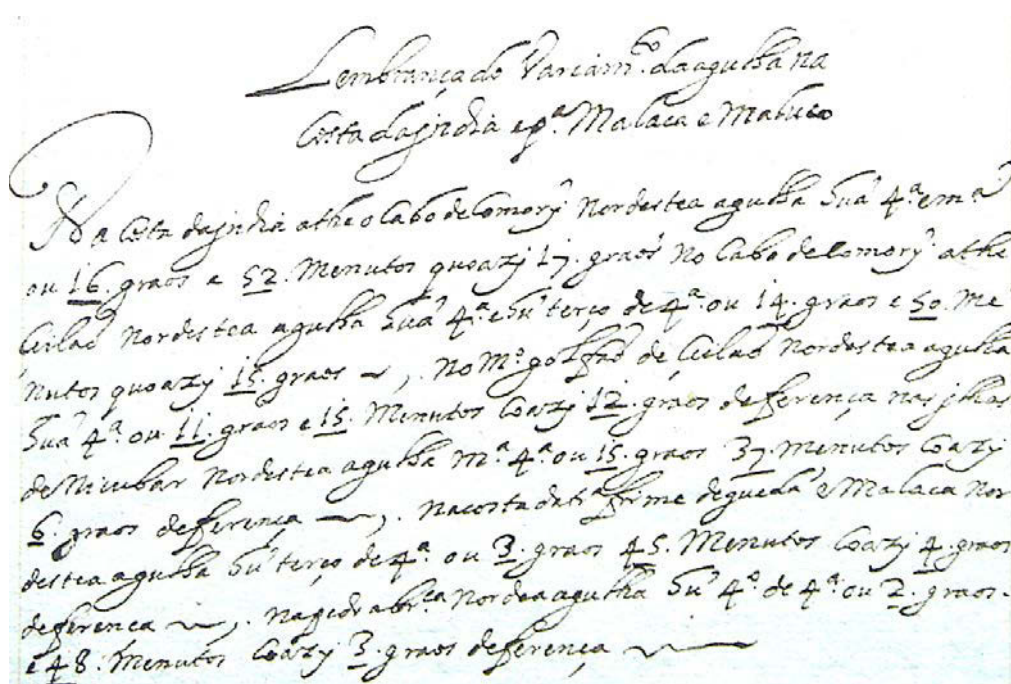 Lembrança do Variam.to da agulha na
Costa da jndia e p.a Malaca e Maluco
Na Costa da jndia athe o Cabo de Comorÿ Nordestea agulha hũa 4.a e m.a
ou 16. graos e 52. Menutos quoazj 17. graos No Cabo de Comorÿ athe
Ceilaõ Nordestea agulha hũa 4.a e hũ terço de 4.a ou 14. graos e 50. Me
nutos quoazj 15. graos ~ ,. No M.o golfaõ de Ceilaõ Nordestea agulha
hũa 4.a ou 11. graos e 15. Menutos Coazj 12. graos deferença nas jlhas
de Nicubar Nordestea agulha m.a 4.a ou 15. graos 37. menutos Coazj
6. graos deferença ~ ,. na costa da t.a firme de quedá e Malaca Nor
destea agulha hũ terço de 4.a ou 3. graos 45. Menutos Coazj 4. graos
deferenca ~ ,. na pedra br.ca Nordea agulha hũ 4.o de 4.a ou 2. graos.
e 48. menutos Coazj 3. graos deferença ~